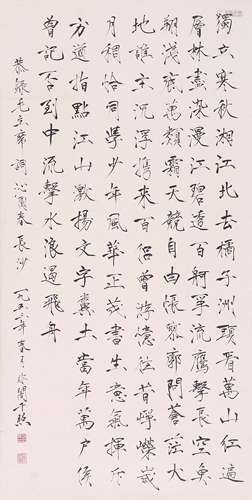 獨立寒秋湘江北去橘子洲頭看萬山紅遍
層林盡染漫江碧透百舸爭流鷹擊長空魚
翔淺底萬類霜天競自由悵寥廓問蒼茫大
地誰主沉浮携來百侶曾游憶往昔崢嶸歲
月稠恰同學少年風華正茂書生意氣揮斥
方遒指點江山激揚文字糞土當年萬户侯
曾記否到中流擊水浪遏飛舟
恭録毛主席詞沁園春長沙
一九五年春